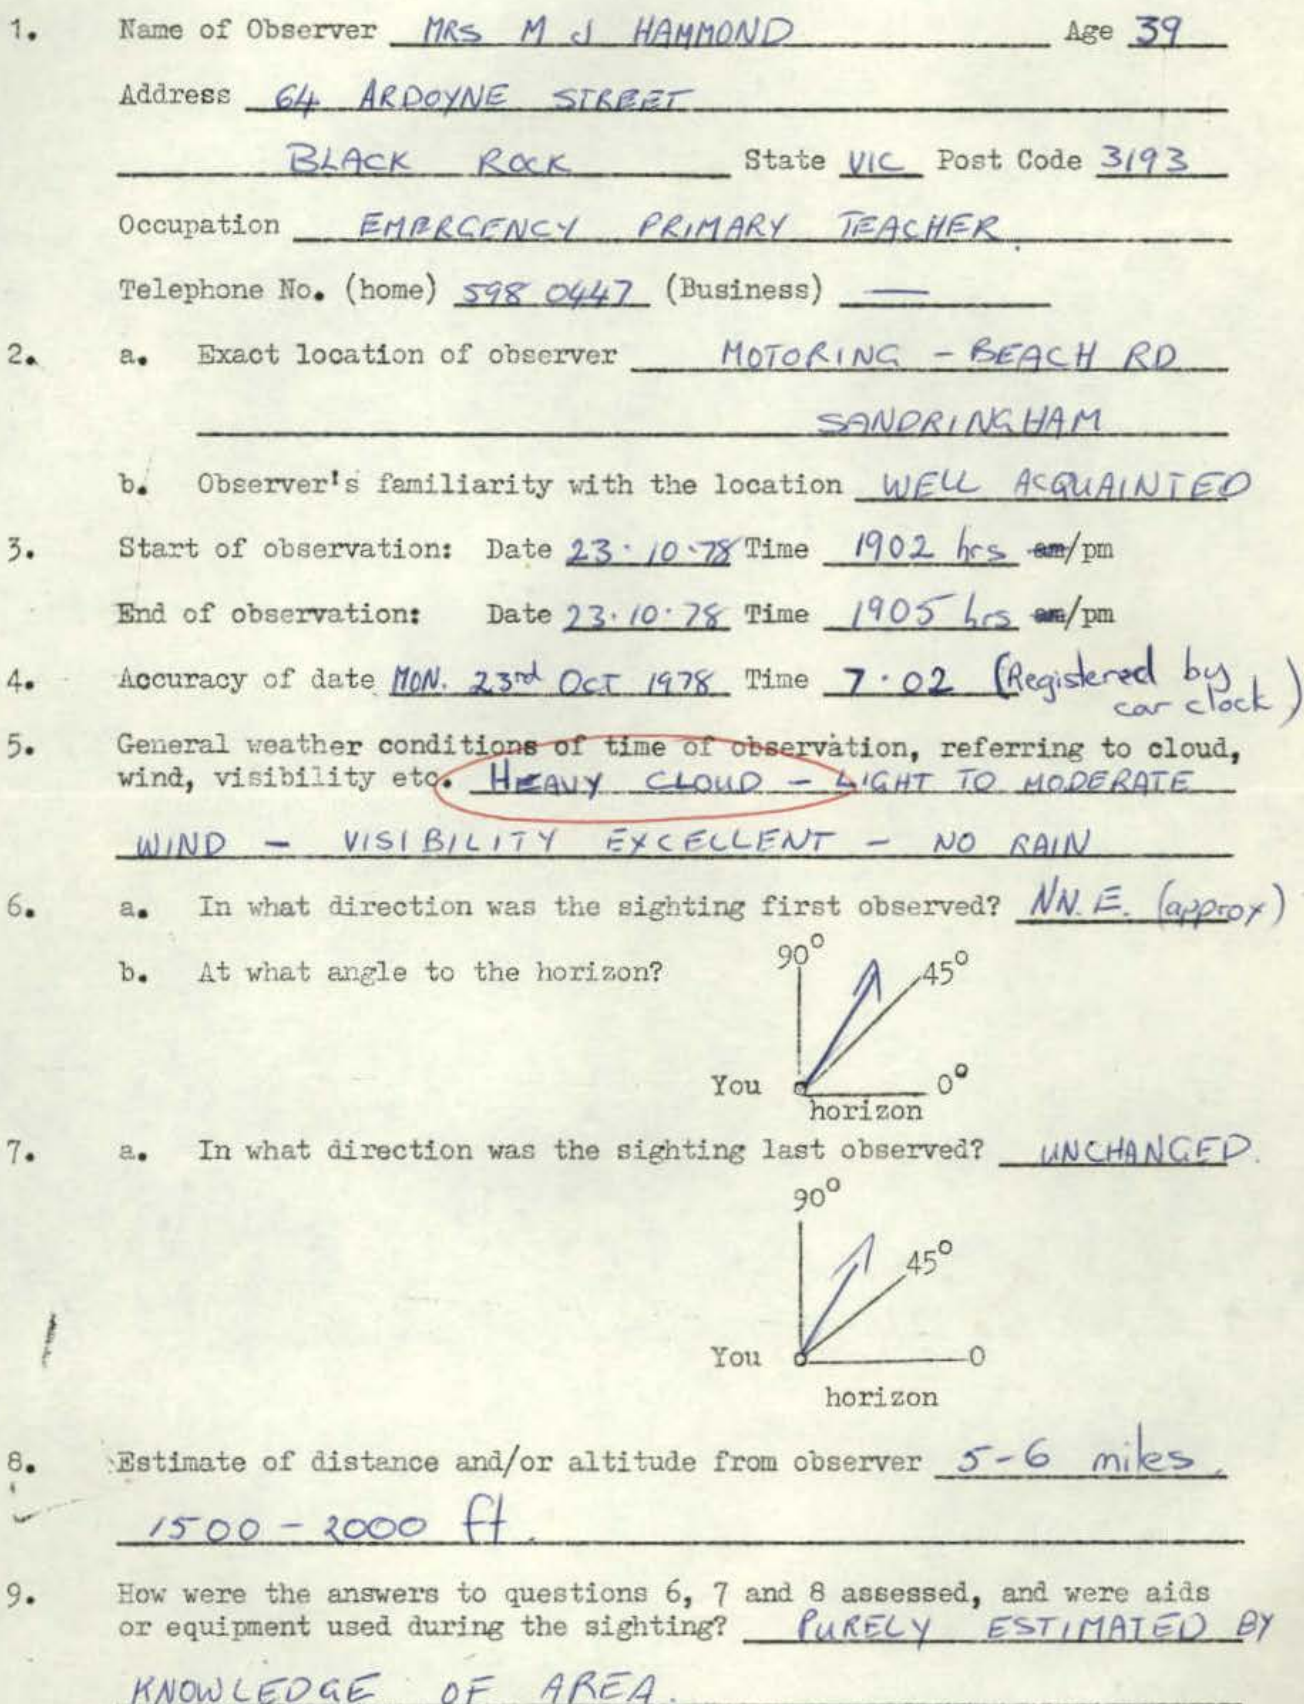 1. Name of Observer MRS M J HAMMOND Age 39
Address 64 ARDOYNE STREET
BLACK ROCK State VIC Post Code 3193
Occupation EMERGENCY PRIMARY TEACHER
Telephone No. (home) 598 0447 (Business) —
2. a. Exact location of observer MOTORING - BEACH RD
SANDRINGHAM
b. Observer's familiarity with the location WELL ACQUAINTED
3. Start of observation: Date 23.10.78 Time 1902 hrs am/pm
End of observation: Date 23.10.78 Time 1905 hrs am/pm
4. Accuracy of date MON. 23rd OCT 1978 Time 7.02 (Registered by
car clock)
5. General weather conditions of time of observation, referring to cloud,
wind, visibility etc. HEAVY CLOUD - LIGHT TO MODERATE
WIND - VISIBILITY EXCELLENT - NO RAIN
6. a. In what direction was the sighting first observed? NN.E. (approx)
b. At what angle to the horizon?
90°
45°
You 0°
horizon
7. a. In what direction was the sighting last observed? UNCHANGED.
90°
45°
You 0
horizon
8. Estimate of distance and/or altitude from observer 5-6 miles,
1500 - 2000 ft.
9. How were the answers to questions 6, 7 and 8 assessed, and were aids
or equipment used during the sighting? PURELY ESTIMATED BY
KNOWLEDGE OF AREA.